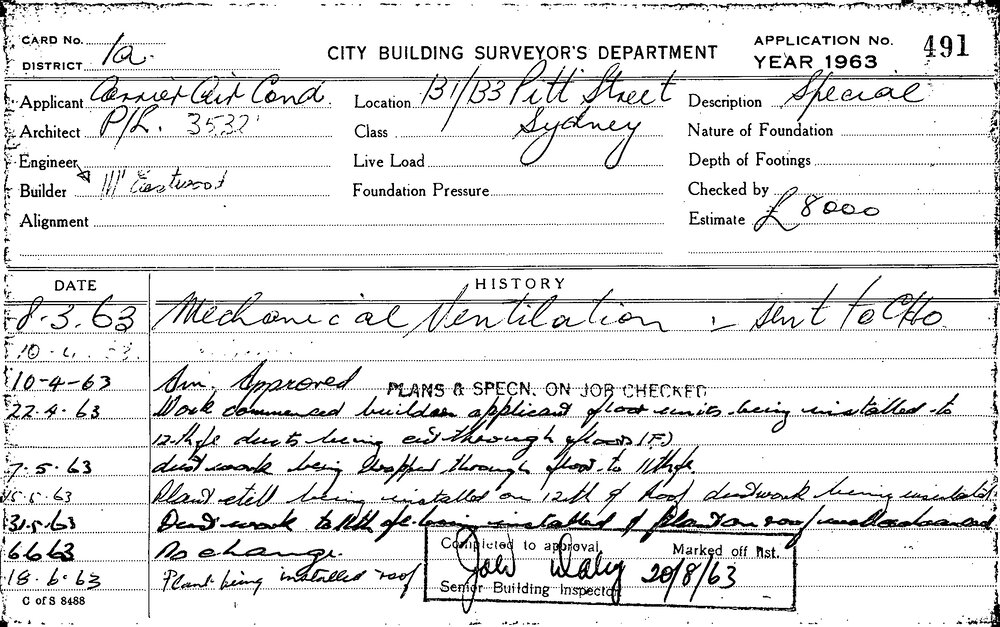 CARD No.
DISTRICT 1a.
CITY BUILDING SURVEYOR'S DEPARTMENT
APPLICATION No. 491
YEAR 1963
Applicant Carrier Air Cond.
Location 131/133 Pitt Street
Description Special
Architect P/L. 3532
Class Sydney
Nature of Foundation
Engineer
Live Load
Depth of Footings
Builder W Eastwood
Foundation Pressure
Checked by
Alignment
Estimate £8000
DATE HISTORY
8.3.63 Mechanical Ventilation :- sent to CHO.
10-4-63 Approved
PLANS & SPECN. ON JOB CHECKED
22.4.63 Work commenced builder applicant floor units being installed to
12th ducts being through floors (F)
7.5.63 duct work being dropped through floor to 11th
Plant still being installed on 12th & Roof ductwork being
31.5.63 Duct work to being installed & plant on roof
6.6.63 No change.
18.6.63 Plant being installed roof
Completed to approval.
Marked off list.
John Daly 20/8/63
Senior Building Inspector
C of S 8488